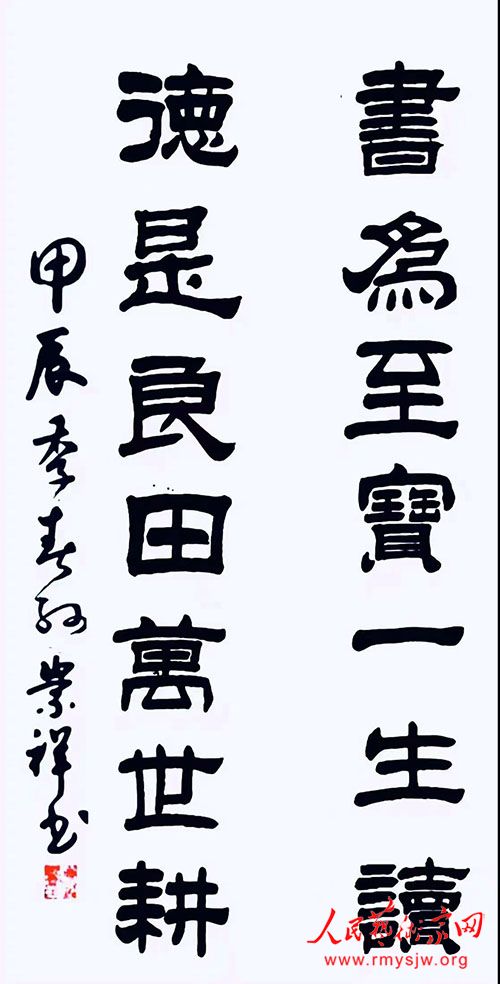 書為至寶一生讀
德是良田萬世耕
甲辰季春孙崇祥书
人民藝術家网
www.rmysjw.org